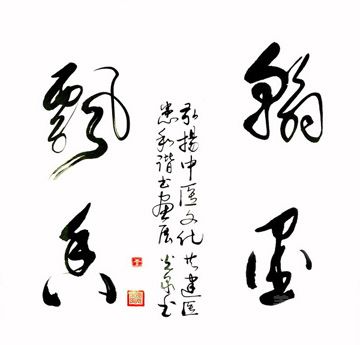 翰墨
飘香
弘扬中医文化共建医
患和谐书画展